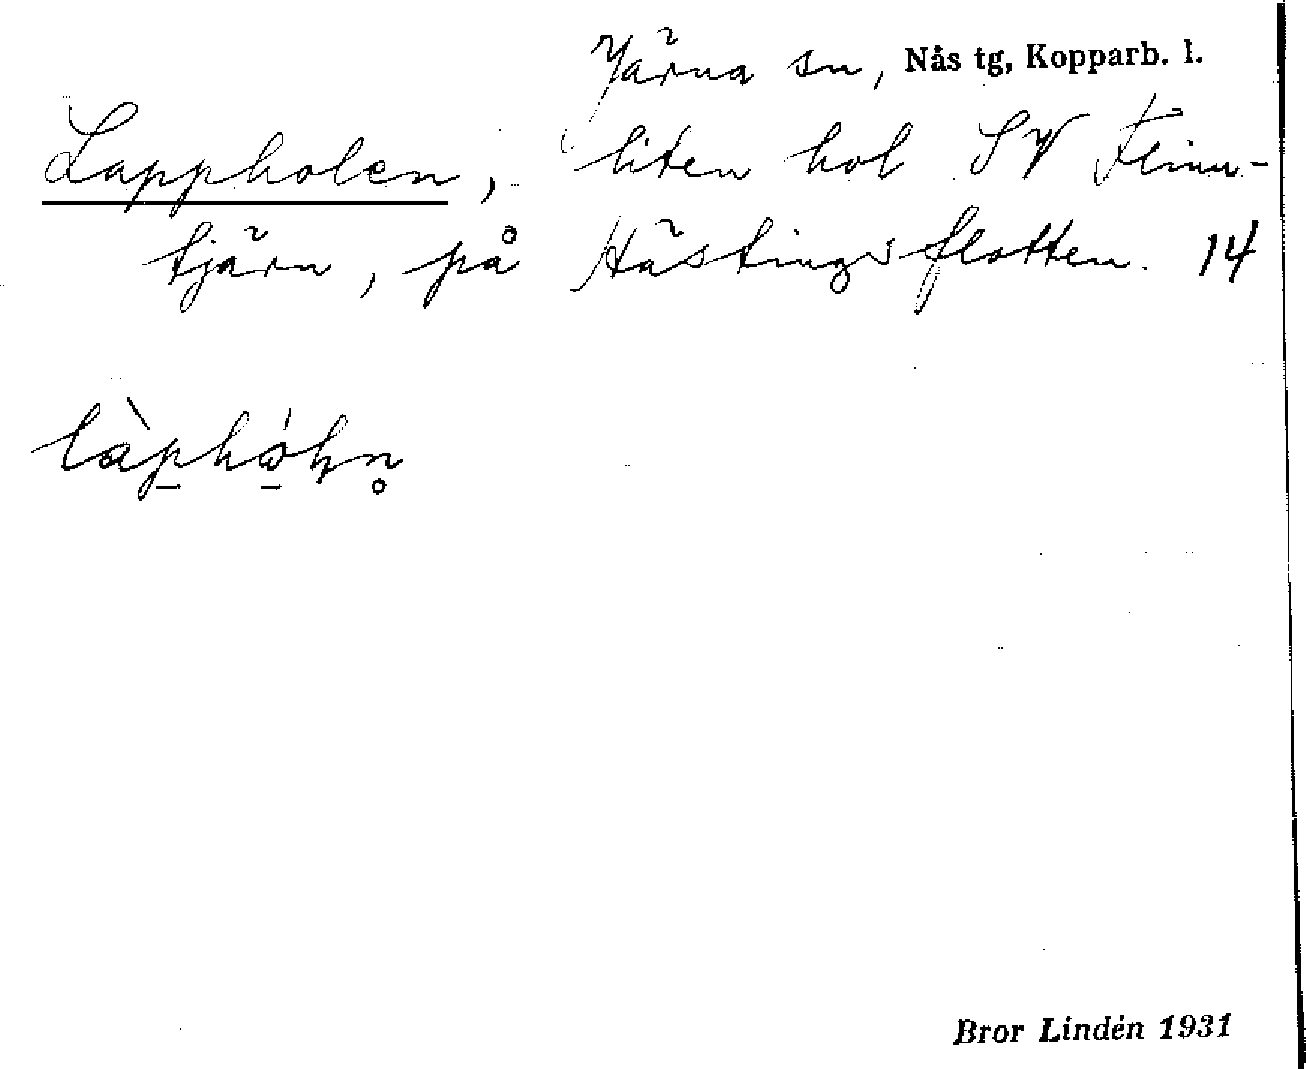 Järna sn, Nås tg, Kopparb. l.
Lappholen, liten hol SV Flinn-
tjärn, på Hästingsflotten. 14
Bror Lindén 1931